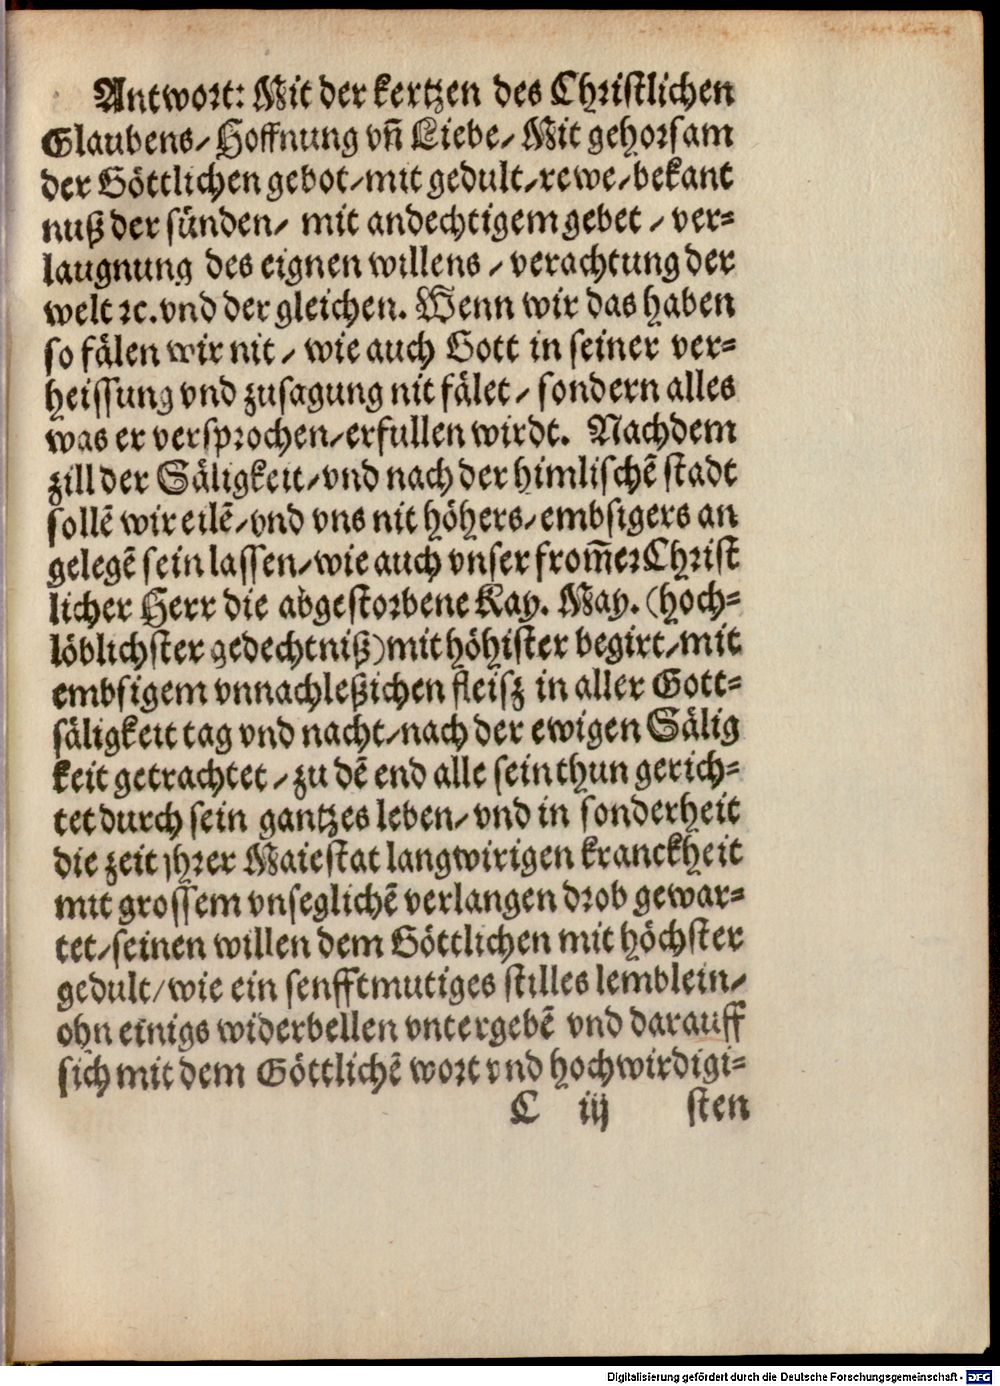 Antwort: Mit der kertzen des Christlichen
Glaubens/ Hoffnung vñ Liebe/ Mit gehorsam
der Göttlichen gebot/mit gedult/rewe/bekant
nuß der sünden/ mit andechtigem gebet / ver=
laugnung des eignen willens / verachtung der
welt ꝛc. vnd der gleichen. Wenn wir das haben
so fälen wir nit / wie auch Gott in seiner ver=
heissung vnd zusagung nit fälet / sondern alles
was er versprochen/erfullen wirdt. Nach dem
zill der Säligkeit/vnd nach der himlischē stadt
sollē wir eilē/vnd vns nit höhers/embsigers an
gelegē sein lassen/wie auch vnser from̄er Christ
licher Herr die abgestorbene Kay. May. (hoch=
löblichster gedechtniß) mit höhister begirt/mit
embsigem vnnachleßichen fleisz in aller Gott=
säligkeit tag vnd nacht/nach der ewigen Sälig
keit getrachtet / zu dē end alle sein thun gerich=
tet durch sein gantzes leben/ vnd in sonderheit
die zeit jhrer Maiestat langwirigen kranckheit
mit grossem vnseglichē verlangen drob gewar=
tet/seinen willen dem Göttlichen mit höchster
gedult/wie ein senfftmutiges stilles lemblein/
ohn einigs widerbellen vntergebē vnd darauff
sich mit dem Göttlichē wort vnd hochwirdigi=
C iij sten
Digitalisierung gefördert durch die Deutsche Forschungsgemeinschaft - DFG